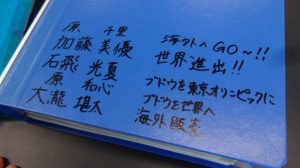 原 千里
加藤 美優
石飛 光夏
原 和心
大瀧 堪太
海外へGO~!!
世界進出!!
ブドウを東京オリンピックに
ブドウを世界へ
海外販売